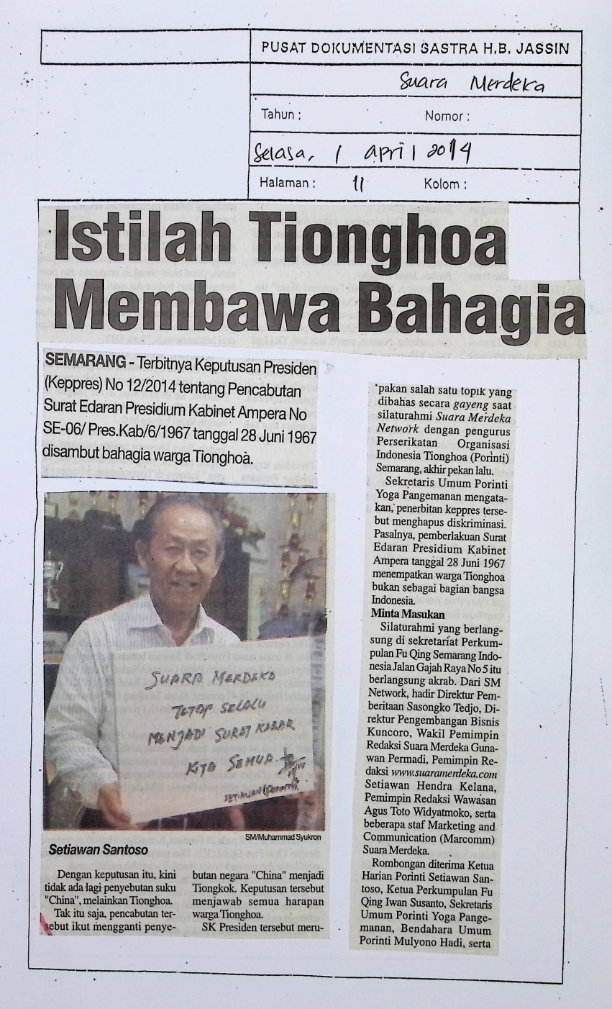 PUSAT DOKUMENTASI SASTRA H.B. JASSIN
Suara Merdeka
Tahun : Nomor :
Selasa, 1 April 2014
Halaman : 11 Kolom :
Istilah Tionghoa
Membawa Bahagia
SEMARANG - Terbitnya Keputusan Presiden
(Keppres) No 12/2014 tentang Pencabutan
Surat Edaran Presidium Kabinet Ampera No
SE-06/ Pres.Kab/6/1967 tanggal 28 Juni 1967
disambut bahagia warga Tionghoa.
SUARA MERDEKA
TETAP SELALU
MENJADI SURAT KABAR
KITA SEMUA
SM/Muhammad Syukron
Setiawan Santoso
Dengan keputusan itu, kini
tidak ada lagi penyebutan suku
"China", melainkan Tionghoa.
Tak itu saja, pencabutan ter-
sebut ikut mengganti penye-
butan negara "China" menjadi
Tiongkok. Keputusan tersebut
menjawab semua harapan
warga Tionghoa.
SK Presiden tersebut meru-
pakan salah satu topik yang
dibahas secara gayeng saat
silaturahmi Suara Merdeka
Network dengan pengurus
Perserikatan Organisasi
Indonesia Tionghoa (Porinti)
Semarang, akhir pekan lalu.
Sekretaris Umum Porinti
Yoga Pangemanan mengata-
kan, penerbitan keppres terse-
but menghapus diskriminasi.
Pasalnya, pemberlakuan Surat
Edaran Presidium Kabinet
Ampera tanggal 28 Juni 1967
menempatkan warga Tionghoa
bukan sebagai bagian bangsa
Indonesia.
Minta Masukan
Silaturahmi yang berlang-
sung di sekretariat Perkum-
pulan Fu Qing Semarang Indo-
nesia Jalan Gajah Raya No 5 itu
berlangsung akrab. Dari SM
Network, hadir Direktur Pem-
beritaan Sasongko Tedjo, Di-
rektur Pengembangan Bisnis
Kuncoro, Wakil Pemimpin
Redaksi Suara Merdeka Guna-
wan Permadi, Pemimpin Re-
daksi www.suaramerdeka.com
Setiawan Hendra Kelana,
Pemimpin Redaksi Wawasan
Agus Toto Widyatmoko, serta
beberapa staf Marketing and
Communication (Marcomm)
Suara Merdeka.
Rombongan diterima Ketua
Harian Porinti Setiawan San-
toso, Ketua Perkumpulan Fu
Qing Iwan Susanto, Sekretaris
Umum Porinti Yoga Pange-
manan, Bendahara Umum
Porinti Mulyono Hadi, serta